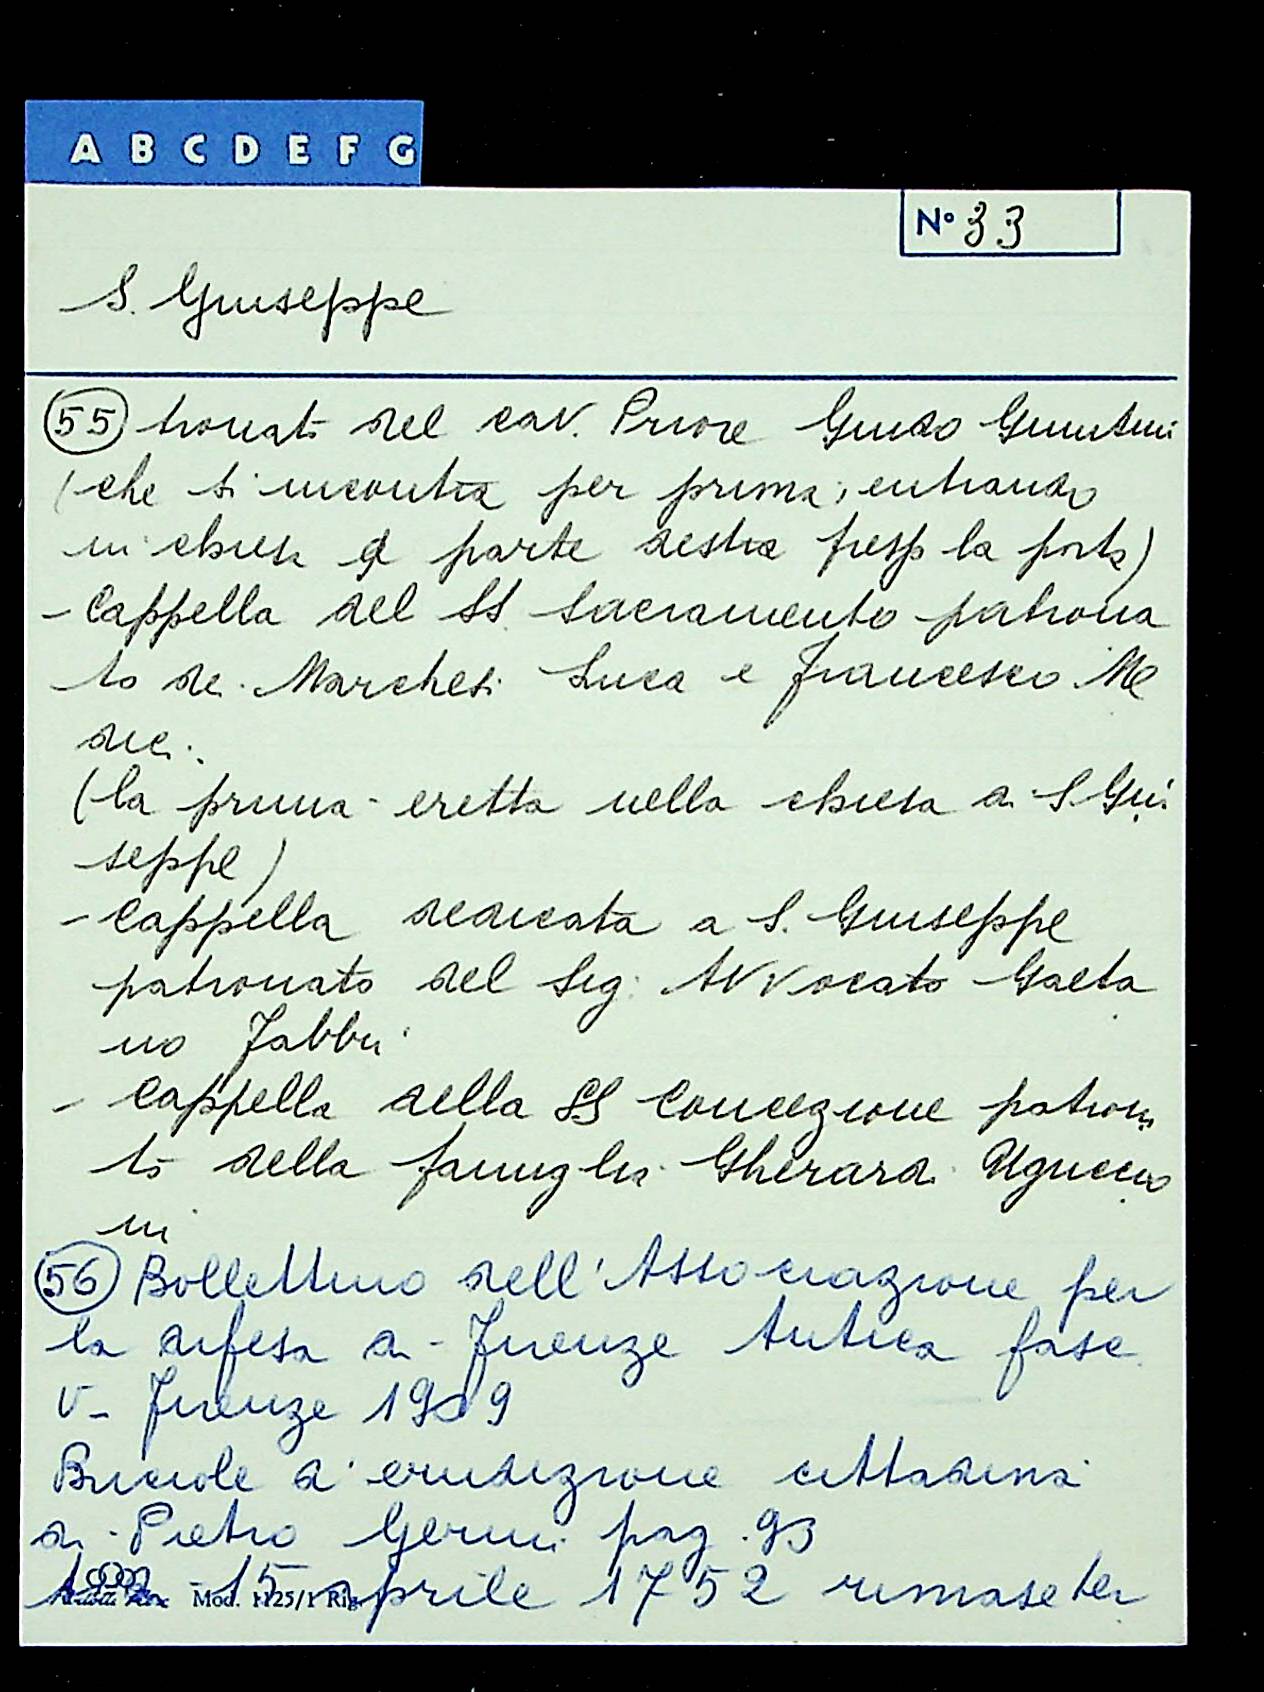 A B C D E F G
N° 33
S. Giuseppe
55 tronato del cav. Priore Guido Guintini
(che si incontra per prima, entrando
in chiesa a parte destra presso la porta)
- Cappella del SS. Sacramento patrona
to dei Marchesi Luca e Francesco Me
dici.
(la prima eretta nella chiesa di S Giu
seppe)
- Cappella dedicata a S. Giuseppe
patronato del Sig. Avvocato Gaeta
no Fabbri
- Cappella della SS Concezione patrona
to della famiglia Gherardi Uguccio
ni
56 Bollettino dell'Associazione per
la difesa di Firenze Antica fasc.
V - Firenze 1909
Briciole d'erudizione cittadina
di Pietro Gerini pag. 93
15 aprile 1752 rimase ter
Mod. 1125/1 Rig